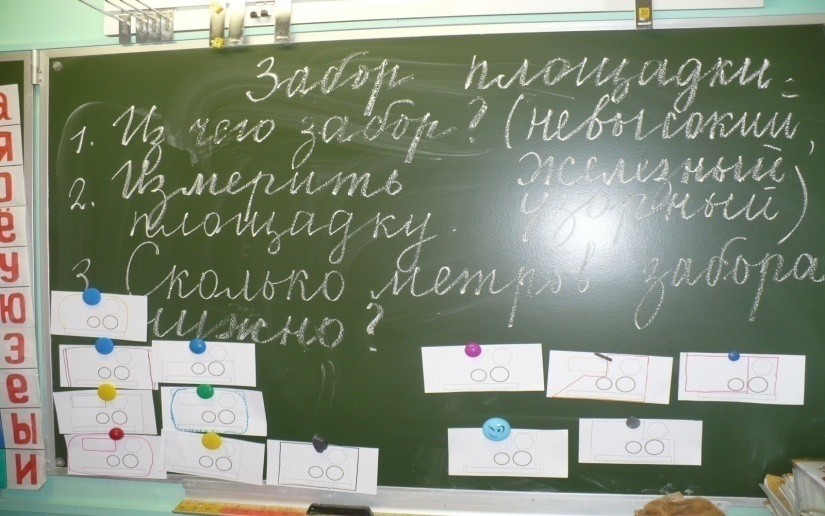 Забор площадки.
1. Из чего забор? (невысокий,
железный,
узорный)
2. Измерить
площадку.
3. Сколько метров забора
нужно?
а
я
о
ё
у
ю
э
е
ы
и